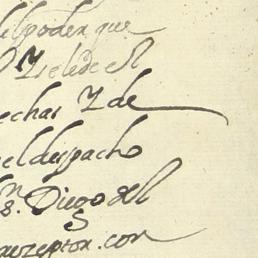 el poder que
Y se le de el
echas Y de
el despacho
s.n Diego del
rezeptor. con